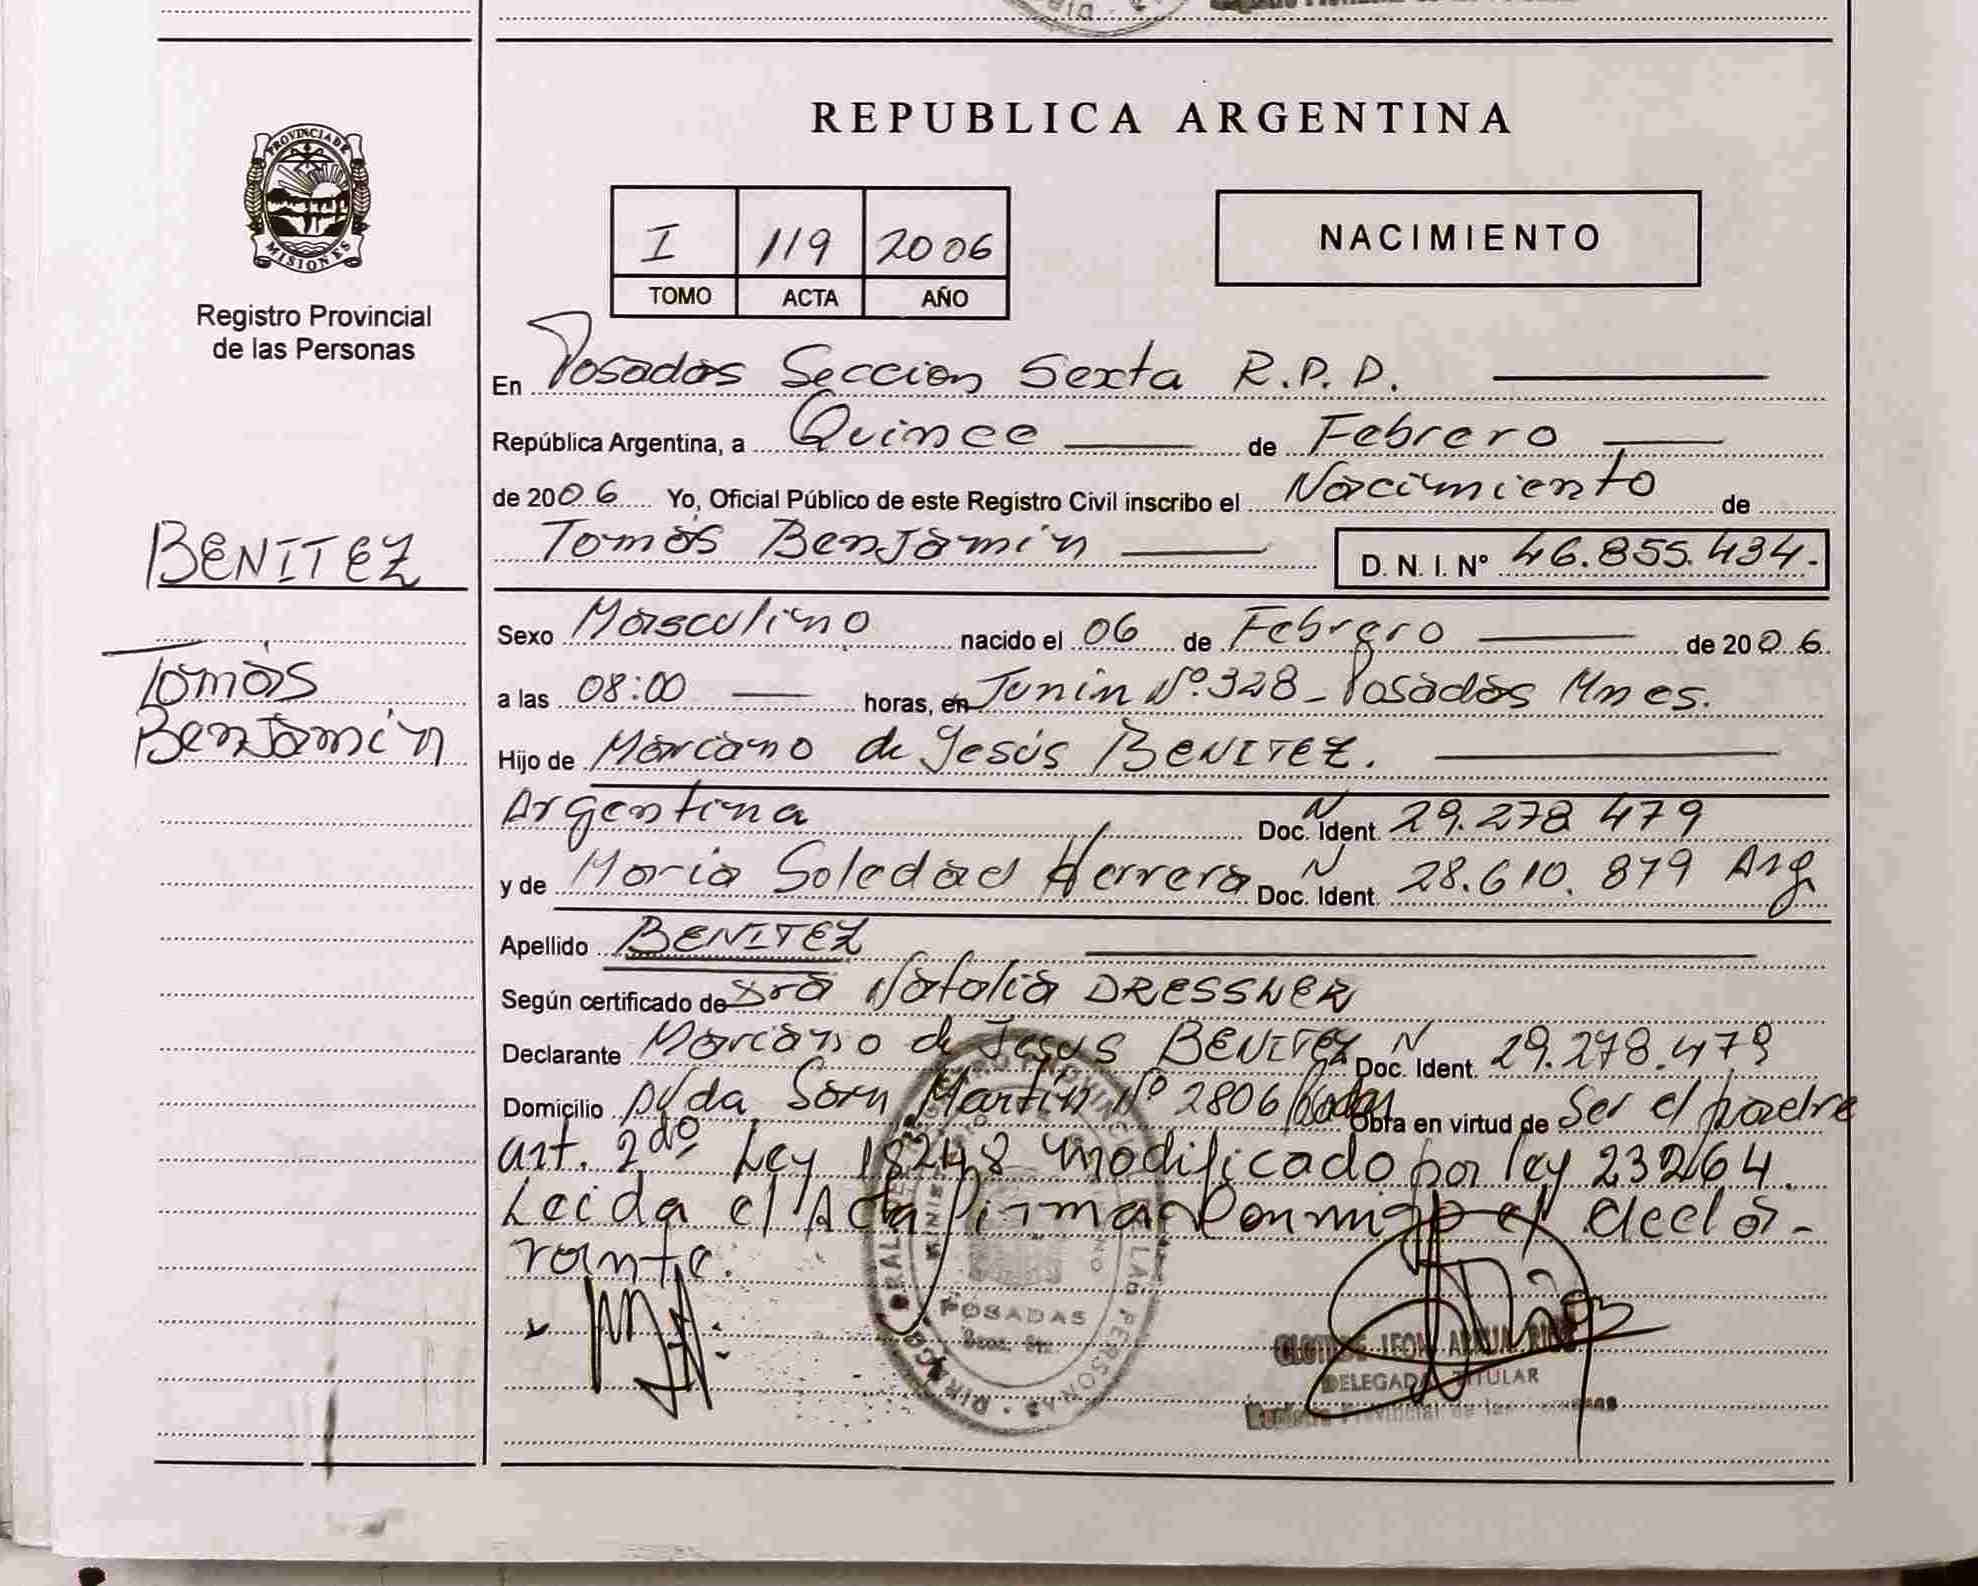 REPUBLICA ARGENTINA
PROVINCIA DE
MISIONES
Registro Provincial
de las Personas
I 119 2006
TOMO ACTA AÑO
NACIMIENTO
En Posadas Seccion Sexta R.P.D.
República Argentina, a Quince de Febrero
de 2006 Yo, Oficial Público de este Registro Civil inscribo el Nacimiento de
Tomás Benjamín D. N. I. Nº 46.855.434.-
BENITEZ
Tomás
Benjamín
Sexo Masculino nacido el 06 de Febrero de 2006.
a las 08:00 horas, en Junin Nº 328 - Posadas Mnes.
Hijo de Marcano de Jesús BENITEZ.
Argentina Doc. Ident. N 29.278.479
y de Maria Soledad Herrera Doc. Ident. N 28.610.879 Arg
Apellido BENITEZ
Según certificado de Dra Natalia DRESSLER
Declarante Marcano de Jesus BENITEZ Doc. Ident. N 29.278.479
Domicilio Avda San Martín Nº 2806 Obra en virtud de Ser el padre
art. 2do Ley 18248 modificado por ley 23264.
Leida el Acta Firma Conmigo el decla-
rante.
POSADAS
DELEGADA TITULAR
Registro Provincial de las Personas